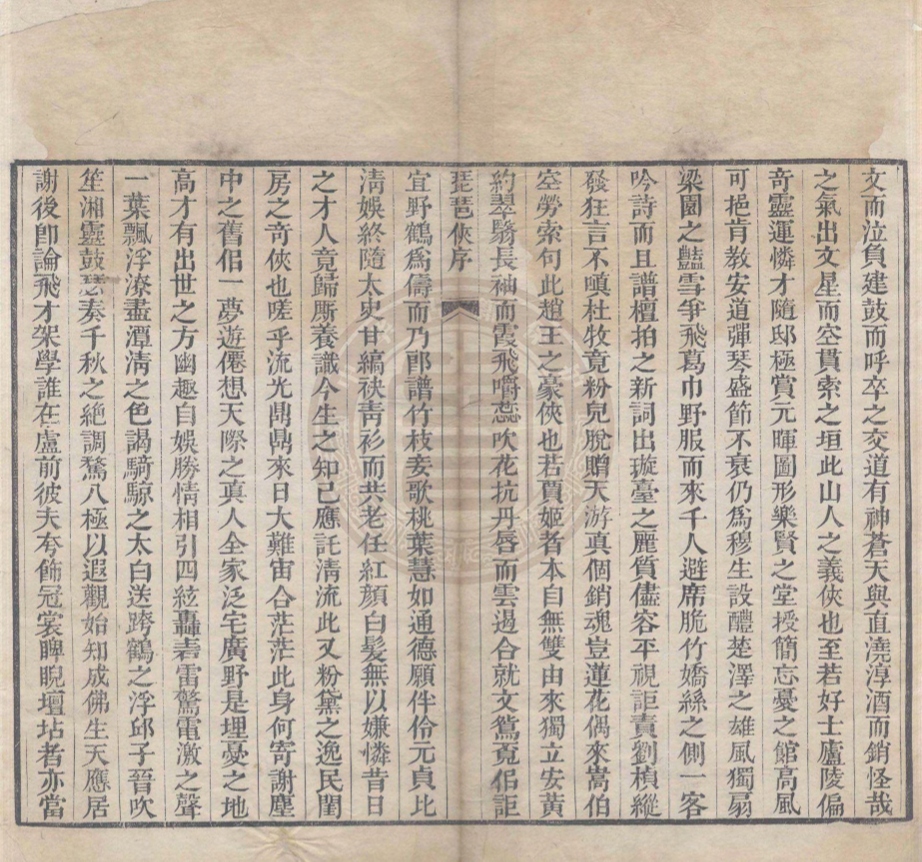 文而泣負建鼓而呼卒之交道有神蒼天與直澆淳酒而銷怪哉
之氣出文星而空貫索之垣此山人之義俠也至若好士廬陵偏
奇靈運憐才隨邸極賞元暉圖形樂賢之堂授簡忘憂之館高風
可挹肯教安道彈琴盛節不衰仍爲穆生設醴楚澤之雄風獨扇
梁園之豔雪爭飛葛巾野服而來千人避席脆竹嬌絲之側一客
吟詩而且譜檀拍之新詞出璇臺之麗質儘容平視詎責劉楨縱
發狂言不嗔杜牧竟粉兒脫贈天游真個銷魂豈蓮花偶來嵩伯
空勞索句此趙王之豪俠也若賈姬者本自無雙由來獨立安黃
約翠翳長袖而霞飛嚼蕊吹花抗丹唇而雲遏合就文鴛覓侶詎
琵琶俠序
宜野鶴爲儔而乃郎譜竹枝妾歌桃葉慧如通德願伴伶元貞比
淸娛終隨太史甘縞袂靑衫而共老任紅顏白髮無以嫌憐昔日
之才人竟歸厮養識今生之知己應託淸流此又粉黛之逸民閨
房之奇俠也嗟乎流光鼎鼎來日大難宙合茫茫此身何寄謝塵
中之舊侶一夢遊僊想天際之眞人全家泛宅廣野是埋憂之地
高才有出世之方幽趣自娛勝情相引四絃轟砉雷驚電激之聲
一葉飄浮潦盡潭淸之色謁騎鯨之太白送跨鶴之浮邱子晉吹
笙湘靈鼓瑟奏千秋之絕調騖八極以遐觀始知成佛生天應居
謝後卽論飛才架學誰在盧前彼夫夸飾冠裳睥睨壇坫者亦當